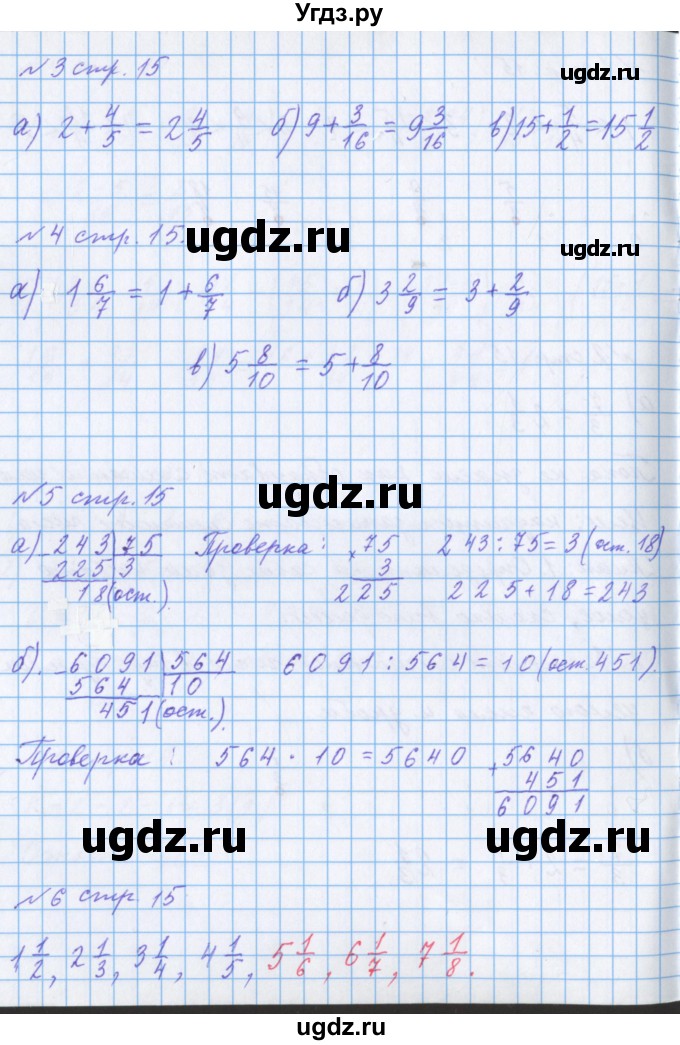 Угдз.ру
№3 стр. 15
ugdz.ru
а) 2 + 4/5 = 2 4/5 б) 9 + 3/16 = 9 3/16 в) 15 + 1/2 = 15 1/2
№4 стр. 15.
ugdz.ru
ugdz.ru
а) 1 6/7 = 1 + 6/7 б) 3 2/9 = 3 + 2/9
в) 5 8/10 = 5 + 8/10
№5 стр. 15
ugdz.ru
а) - 243 | 75 Проверка: × 75 243 : 75 = 3 (ост. 18)
225 | 3 3
18 (ост.) 225 225 + 18 = 243
б). - 6091 | 564 6091 : 564 = 10 (ост. 451).
564 | 10
451 (ост.)
Проверка : 564 · 10 = 5640 + 5640
451
6091
ugdz.ru
ugdz.ru
№6 стр. 15
1 1/2, 2 1/3, 3 1/4, 4 1/5, 5 1/6, 6 1/7, 7 1/8.
ugdz.ru